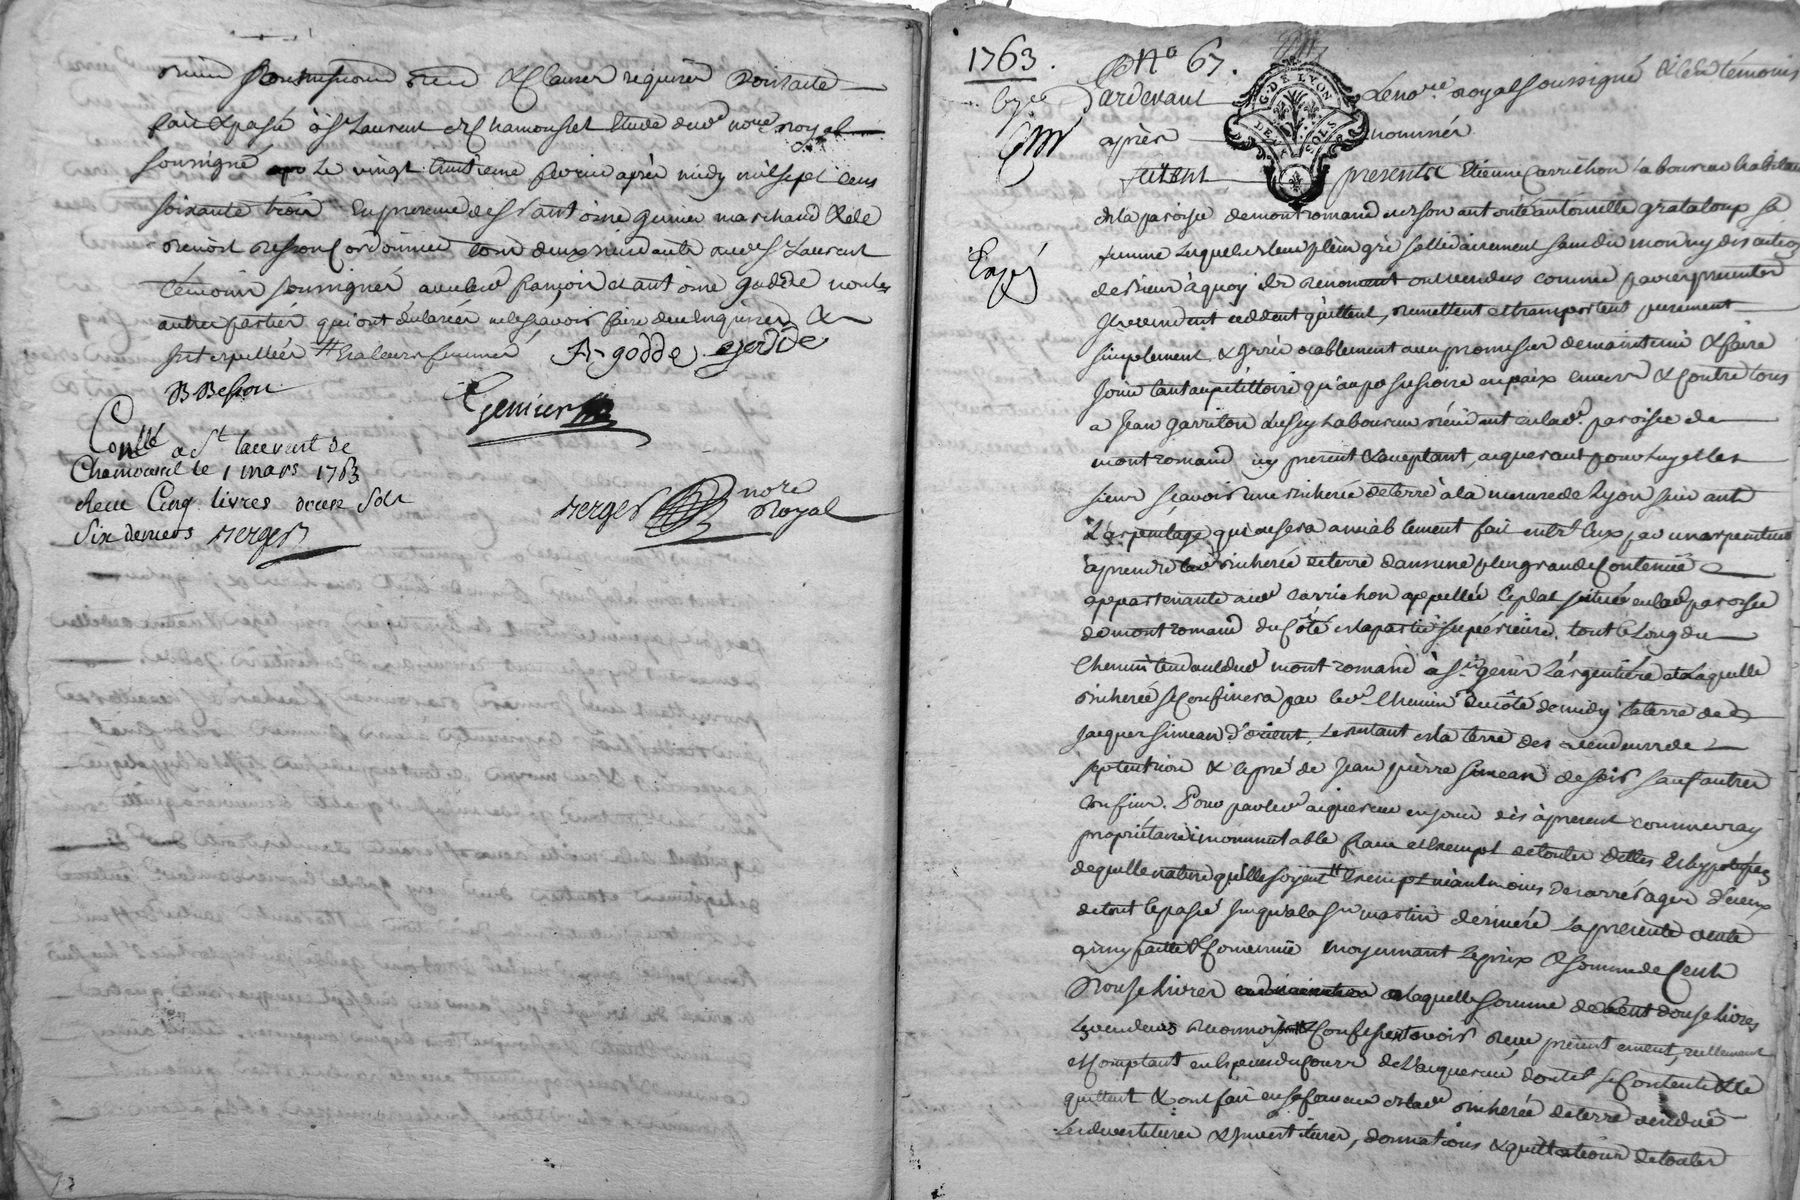 soumissions clauses requises dont acte
fait & passé à St Laurent de Chamousset étude dud. nore royal
soussigné le vingt huitieme fevrier après midy mil sept cens
soixante trois en presence de Sr antoine genier marchand & de
benoist besson cordonnier tous deux residants aud. St Laurent
témoins soussignés avec led. françois et antoine godde non les
autres parties qui ont declarées ne sçavoir faire de ce enquises &
interpellées
A godde godde
B Besson
Genier
Conllé a St laurent de
Chamousset le 1 mars 1763
Receu Cinq livres douze Sols
Six deniers Berger
Berger nore
Royal
1763. No 67.
Pardevant Le nore royal soussigné & les témoins
après nommés
G. DE LYON
DEUX SOLS
furent presents Etienne Carrichon Laboureur habitant
de la paroisse de montromand et de son autorité antoinette grataloup sa
femme Lesquels de leur plein gré sollidairement sans division ny discution
de biens à quoy ils renoncent ont vendus comme par ces presentes
Ils vendent cèddent quittent, remettent et transportent purement
simplement & Irrévocablement avec promesse de maintenir & faire
Jouir tant au petittoire qu'au possessoire en paix envers & contre tous
a Jean garriton Laboureur résident en lad. paroisse de
montromand, icy present & aceptant, aquerant pour luy et les
siens sçavoir une bicherée de terre à la mesure de Lyon suivant
L'arpentage qui en sera amiablement fait entr'eux par un arpenteur
à prendre lad. bicherée de terre dans une plus grande Contenüe
appartenante aud. Carrichon appellée Le plat située en lad. paroisse
de montromand du Côté et la partie supérieure, tout le Long du
Chemin tendant dud. montromand à St genis L'argentière et Laquelle
bicherée se Confinera par led. Chemin du côté de midy, la terre de
Jacques Simean d'orient, Le restant de la terre des vendeurs de
septentrion & le pré de Jean pierre Simean de soir sauf autres
confins. Pour par led. aquereur en jouir dès à present comme vray
propriétaire incommutable franc et exempt de toutes dettes et hypoteques
de quelle nature qu'elles soyent exempt néantmoins d'arrérages d'iceux
de tout le passé jusqu'a la St martin derniere La presente vente
ainsy faitte & Convenüe moyennant Le prix & somme de Cent
Douse livres laquelle somme de Cent douse livres
Les vendeurs reconnoissent & Confessent avoir receu presentement, réellement
et Comptant en Especes du Cours de L'aquereur dont ils se Contentent & le
quittent & ont fait en sa faveur de lad. bicherée de terre vendüe
Les devestitures & Investitures, donnations & quittations de toutes